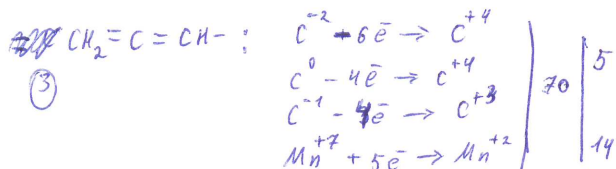 CH₂=C=CH- :
C⁻² - 6ē → C⁺⁴
③
C⁰ - 4ē → C⁺⁴
C⁻¹ - 4ē → C⁺³
Mn⁺⁷ + 5ē → Mn⁺²
70
5
14